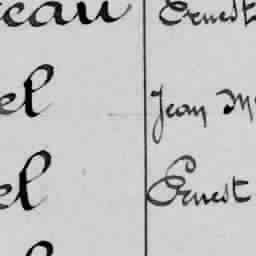 eau Ernest
el Jean M
el Ernest